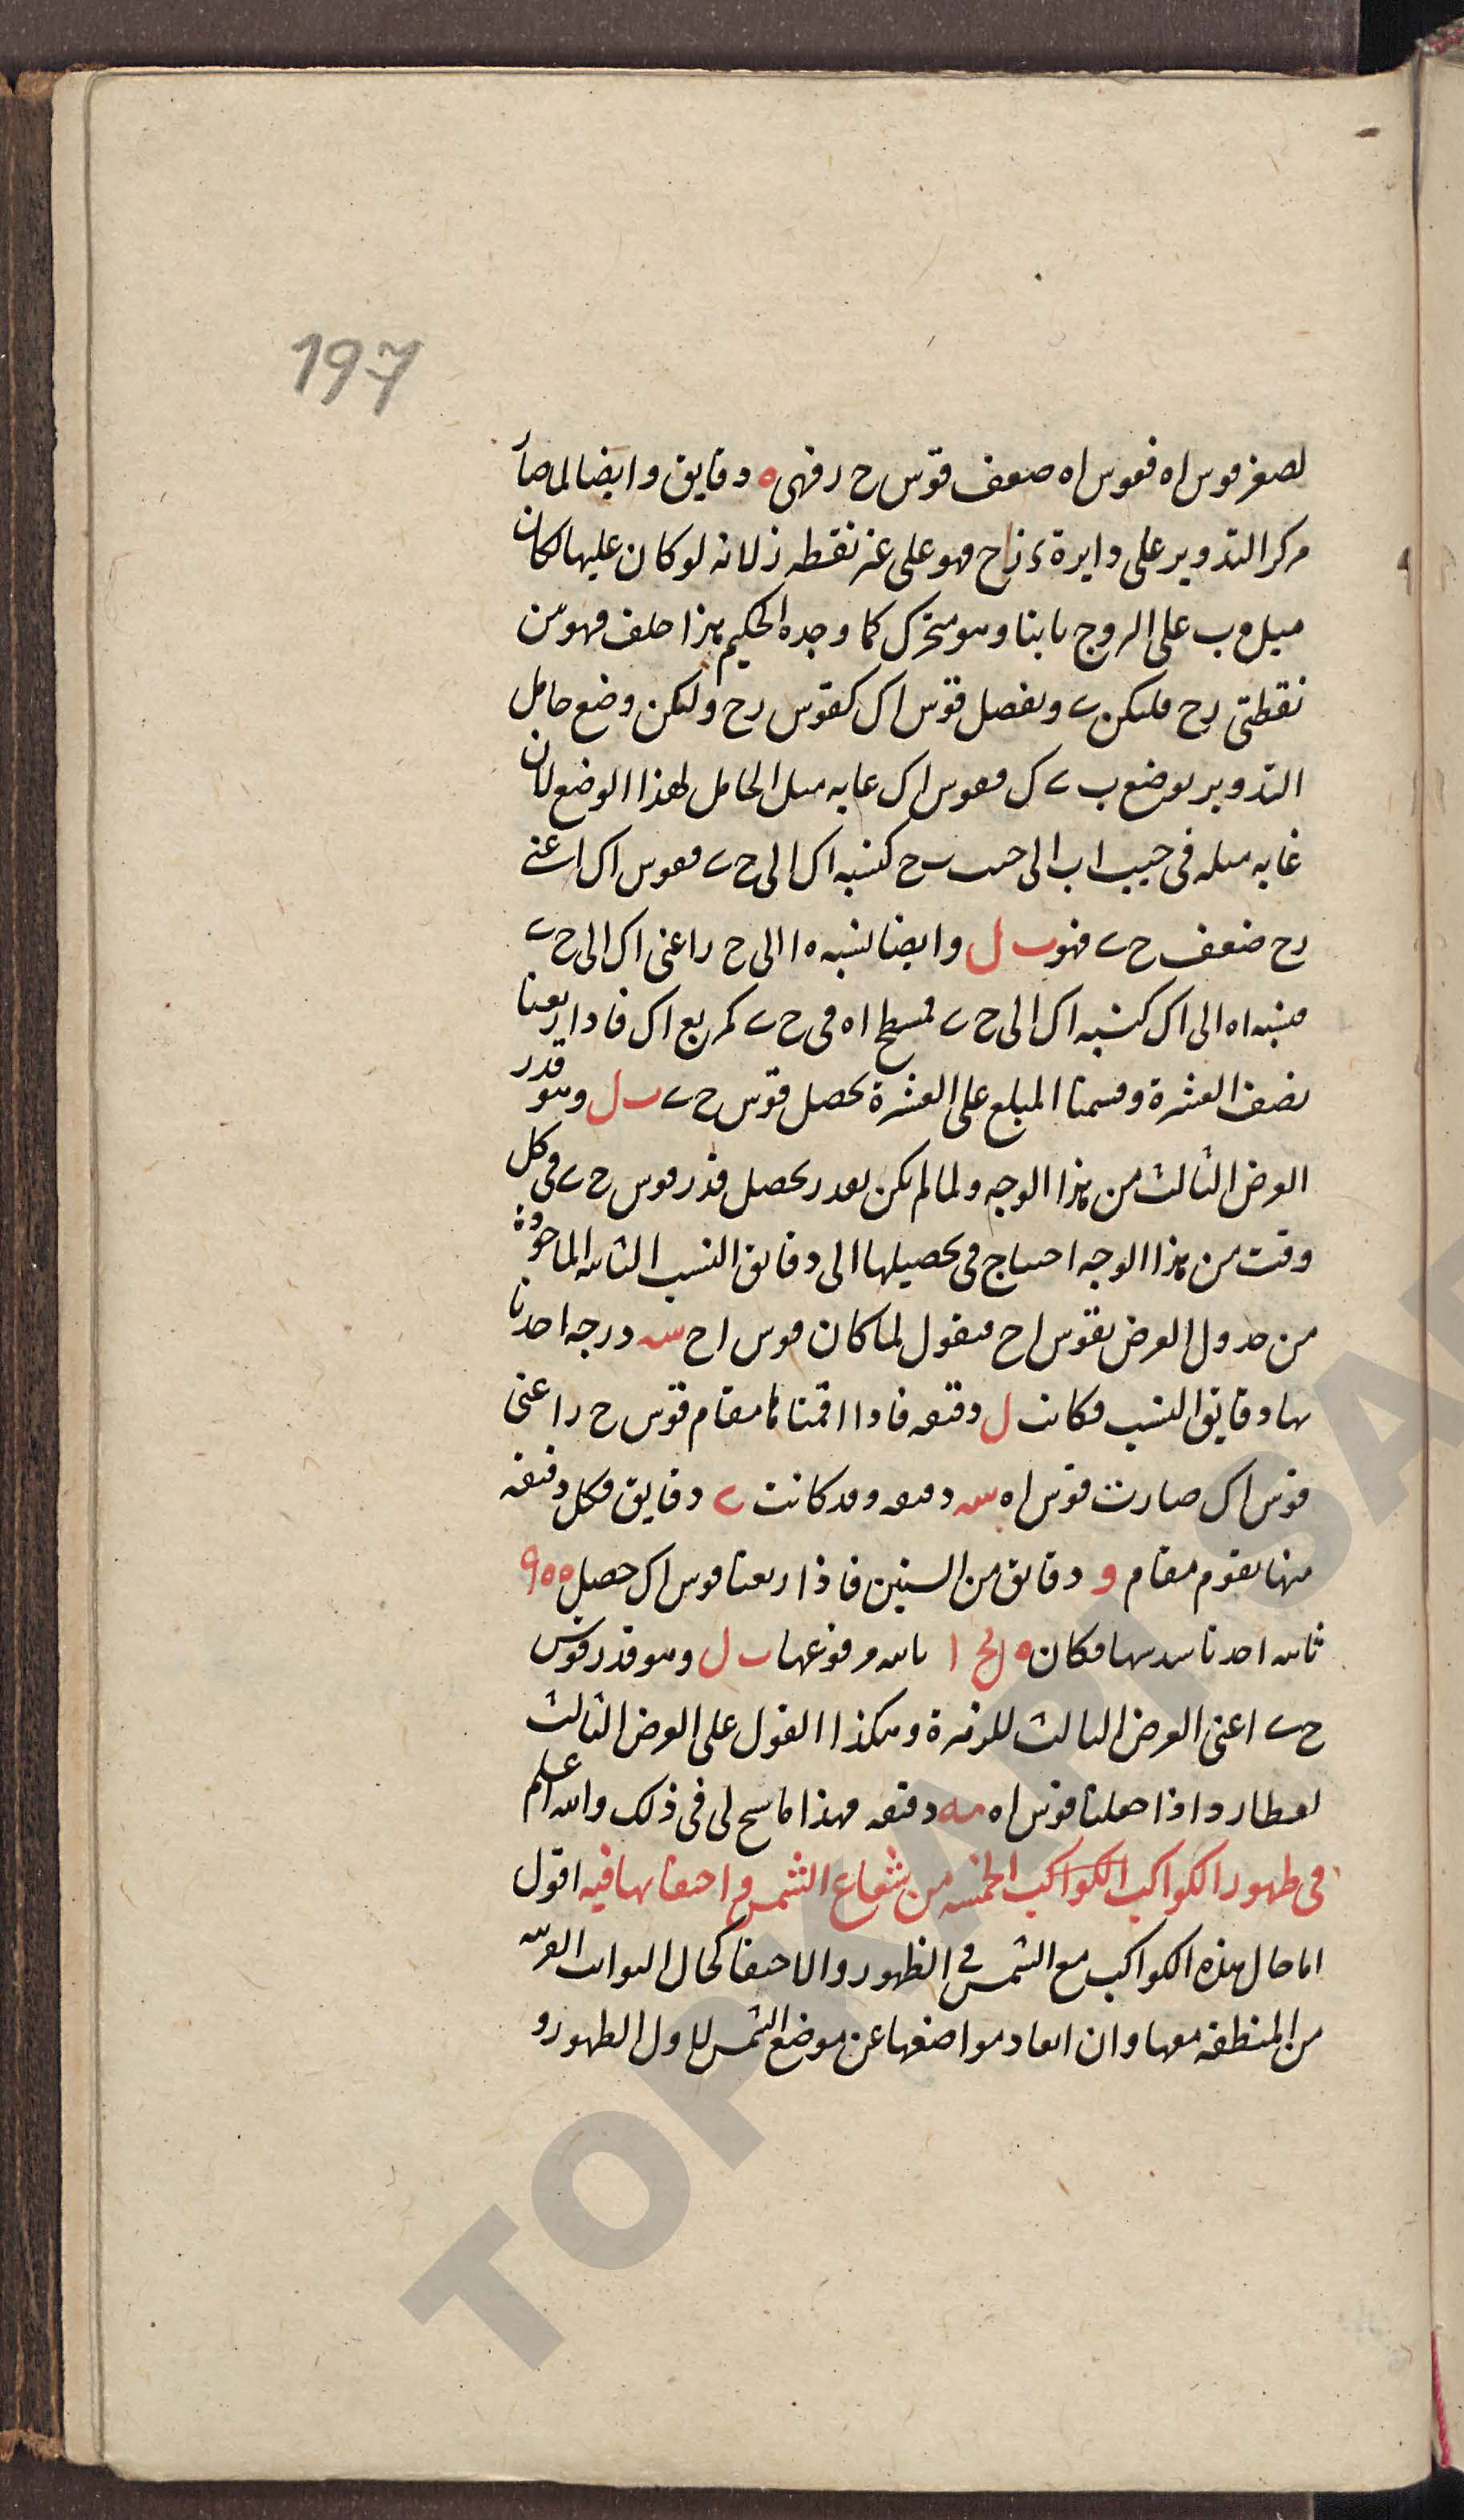 197
لصغر قوس اه فقوس اه ضعف قوس ح ر فهى ه دقايق وايضا لما صار
مركز التدوير على دايرة ى ز اح فهو على غير نقطه ز لانه لو كان عليها لكان
ميل وب على البروج ثابتا وهو متحرك كما وجده الحكيم هذا خلف فهو من
نقطتى رح فليكن ى ونفصل قوس اك كقوس رح وليكن وضع حامل
التدوير بوضع ب ى ك فقوس اك غايه ميل الحامل لهذا الوضع لان
غايه ميله فى جيب اب الى جيب ب ح كنسبه اك الى ح ى فقوس اك اعنى
رح ضعف ح ى فهو ب ل وايضا نسبه ه ا الى ح ر اعنى اك الى ح ى
فنسبه اه الى اك كنسبه اك الى ح ى فمسطح اه فى ح ى كمربع اك فاذا ربعنا
نصف العشرة وقسمنا المبلغ على العشرة يحصل قوس ح ى ب ل وهو قدر
العرض الثالث من هذا الوجه ولما لم يكن بعد ر يحصل قدر قوس ح ى فى كل
وقت من هذا الوجه احتاج فى تحصيلها الى دقايق النسب الثانيه الماخوذة
من جدول العرض بقوس اح فنقول لما كان قوس اح سه درجه اخذنا
بها دقايق النسب فكانت ل دقيقه فاذا اقمناها مقام قوس ح ر اعنى
قوس اك صارت قوس اه سه دقيقه وقد كانت ى دقايق فكل دقيقه
منها يقوم مقام و دقايق من الستين فاذا ربعنا قوس اك حصل ٩٥٥
ثانيه اخذنا سدسها فكان ه لح ا ثانيه مرفوعها ب ل وهو قدر قوس
ح ى اعنى العرض الثالث للزهرة وهكذا القول على العرض الثالث
لعطارد اذا جعلنا قوس اه مه دقيقه فهذا ما سنح لى فى ذلك والله اعلم
فى ظهور الكواكب الكواكب الخمسه من شعاع الشمس واختفائها فيه اقول
اما حال هذه الكواكب مع الشمس فى الظهور والاختفا كحال الثوابت القريبه
من المنطقه معها وان ابعاد مواضعها عن موضع الشمس لاول الظهور و